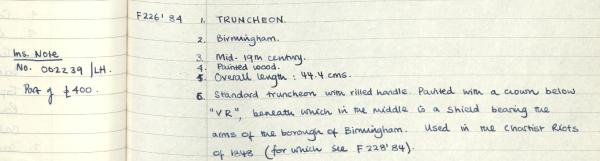 F226'84 1. TRUNCHEON.
2. Birmingham.
3. Mid-19th century.
4. Painted wood.
5. Overall length: 44.4 cms.
6. Standard truncheon with rilled handle. Painted with a crown below
"VR", beneath which in the middle is a shield bearing the
arms of the borough of Birmingham. Used in the Chartist Riots
of 1848 (for which see F228'84).
Ins. Note
No. 002239/LH.
Part of £400.